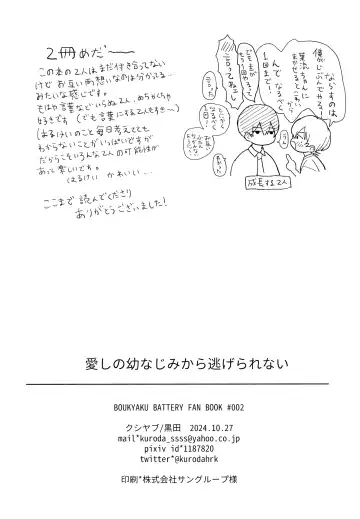 2冊めだ〜
この本の2人はまだ付き合ってない
けどお互い両想いなのは分かってる…
みたいな感じです。
もはや言葉などいらぬ2人、めちゃくちゃ
好きです(でも言葉にする2人もすき〜)
はるけいのこと毎日考えてても
わからないことがいっぱいですが
だからこそいろんな2人の可能性が
あって楽しいです。
はるけい かわいい…
ここまで読んでくださり
ありがとうございました!
ならすのは
僕じぶんでやる
から
葉流ちゃんに
なるべく
1回まで!
成長する2人
愛しの幼なじみから逃げられない
BOUKYAKU BATTERY FAN BOOK #002
クシヤブ/黒田 2024.10.27
mail*kuroda_ssss@yahoo.co.jp
pixiv id*1187820
twitter*@kurodahrk
印刷*株式会社サングループ様